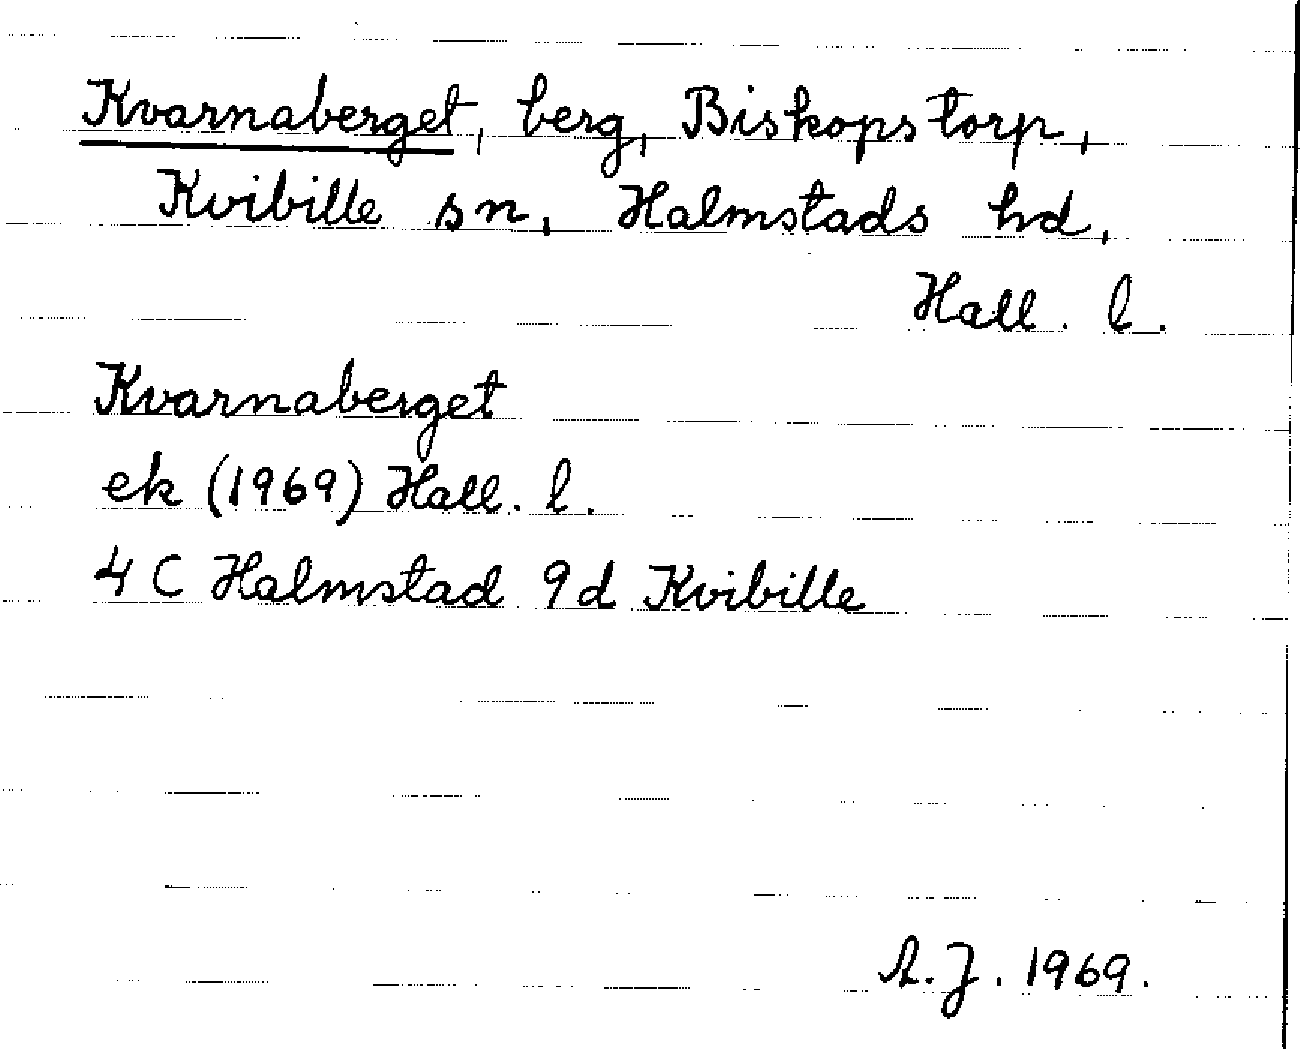 Kvarnaberget, berg, Biskopstorp,
Kvibille sn, Halmstads hd,
Hall. l.
Kvarnaberget
ek (1969) Hall. l.
4 C Halmstad 9d Kvibille
A.J. 1969.